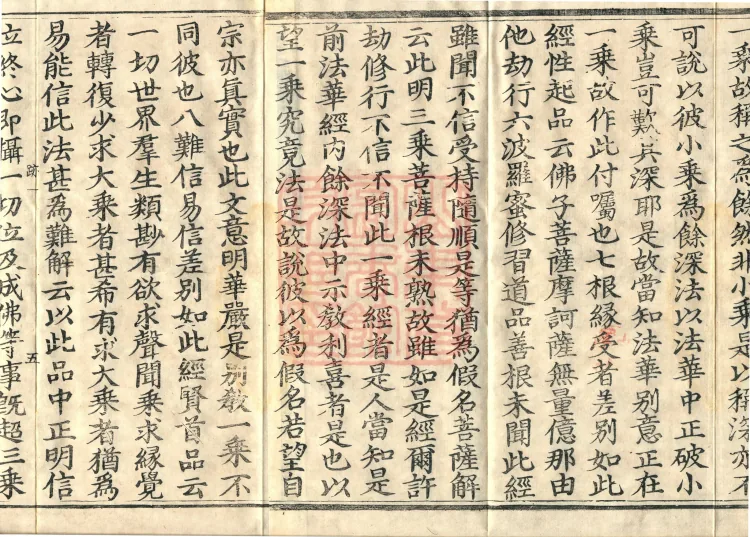 一乘故稱之爲餘然非小乘是以稱深亦不
可說以彼小乘爲餘深法以法華中正破小
乘豈可歎其深耶是故當知法華別意正在
一乘故作此付囑也七根緣受者差別如此
經性起品云佛子菩薩摩訶薩無量億那由
他劫行六波羅蜜修習道品善根未聞此經
雖聞不信受持隨順是等猶爲假名菩薩解
云此明三乘菩薩根未熟故雖如是經爾許
劫修行不信不聞此一乘經者是人當知是
前法華經內餘深法中示敎利喜者是也以
望一乘究竟法是故說彼以爲假名若望自
宗亦眞實也此文意明華嚴是別敎一乘不
同彼也八難信易信差別如此經賢首品云
一切世界羣生類尠有欲求聲聞乘求緣覺
者轉復少求大乘者甚希有求大乘者猶爲
易能信此法甚爲難解云以此品中正明信
跡一 五
立終心即攝一切位及成佛等事旣超三乘